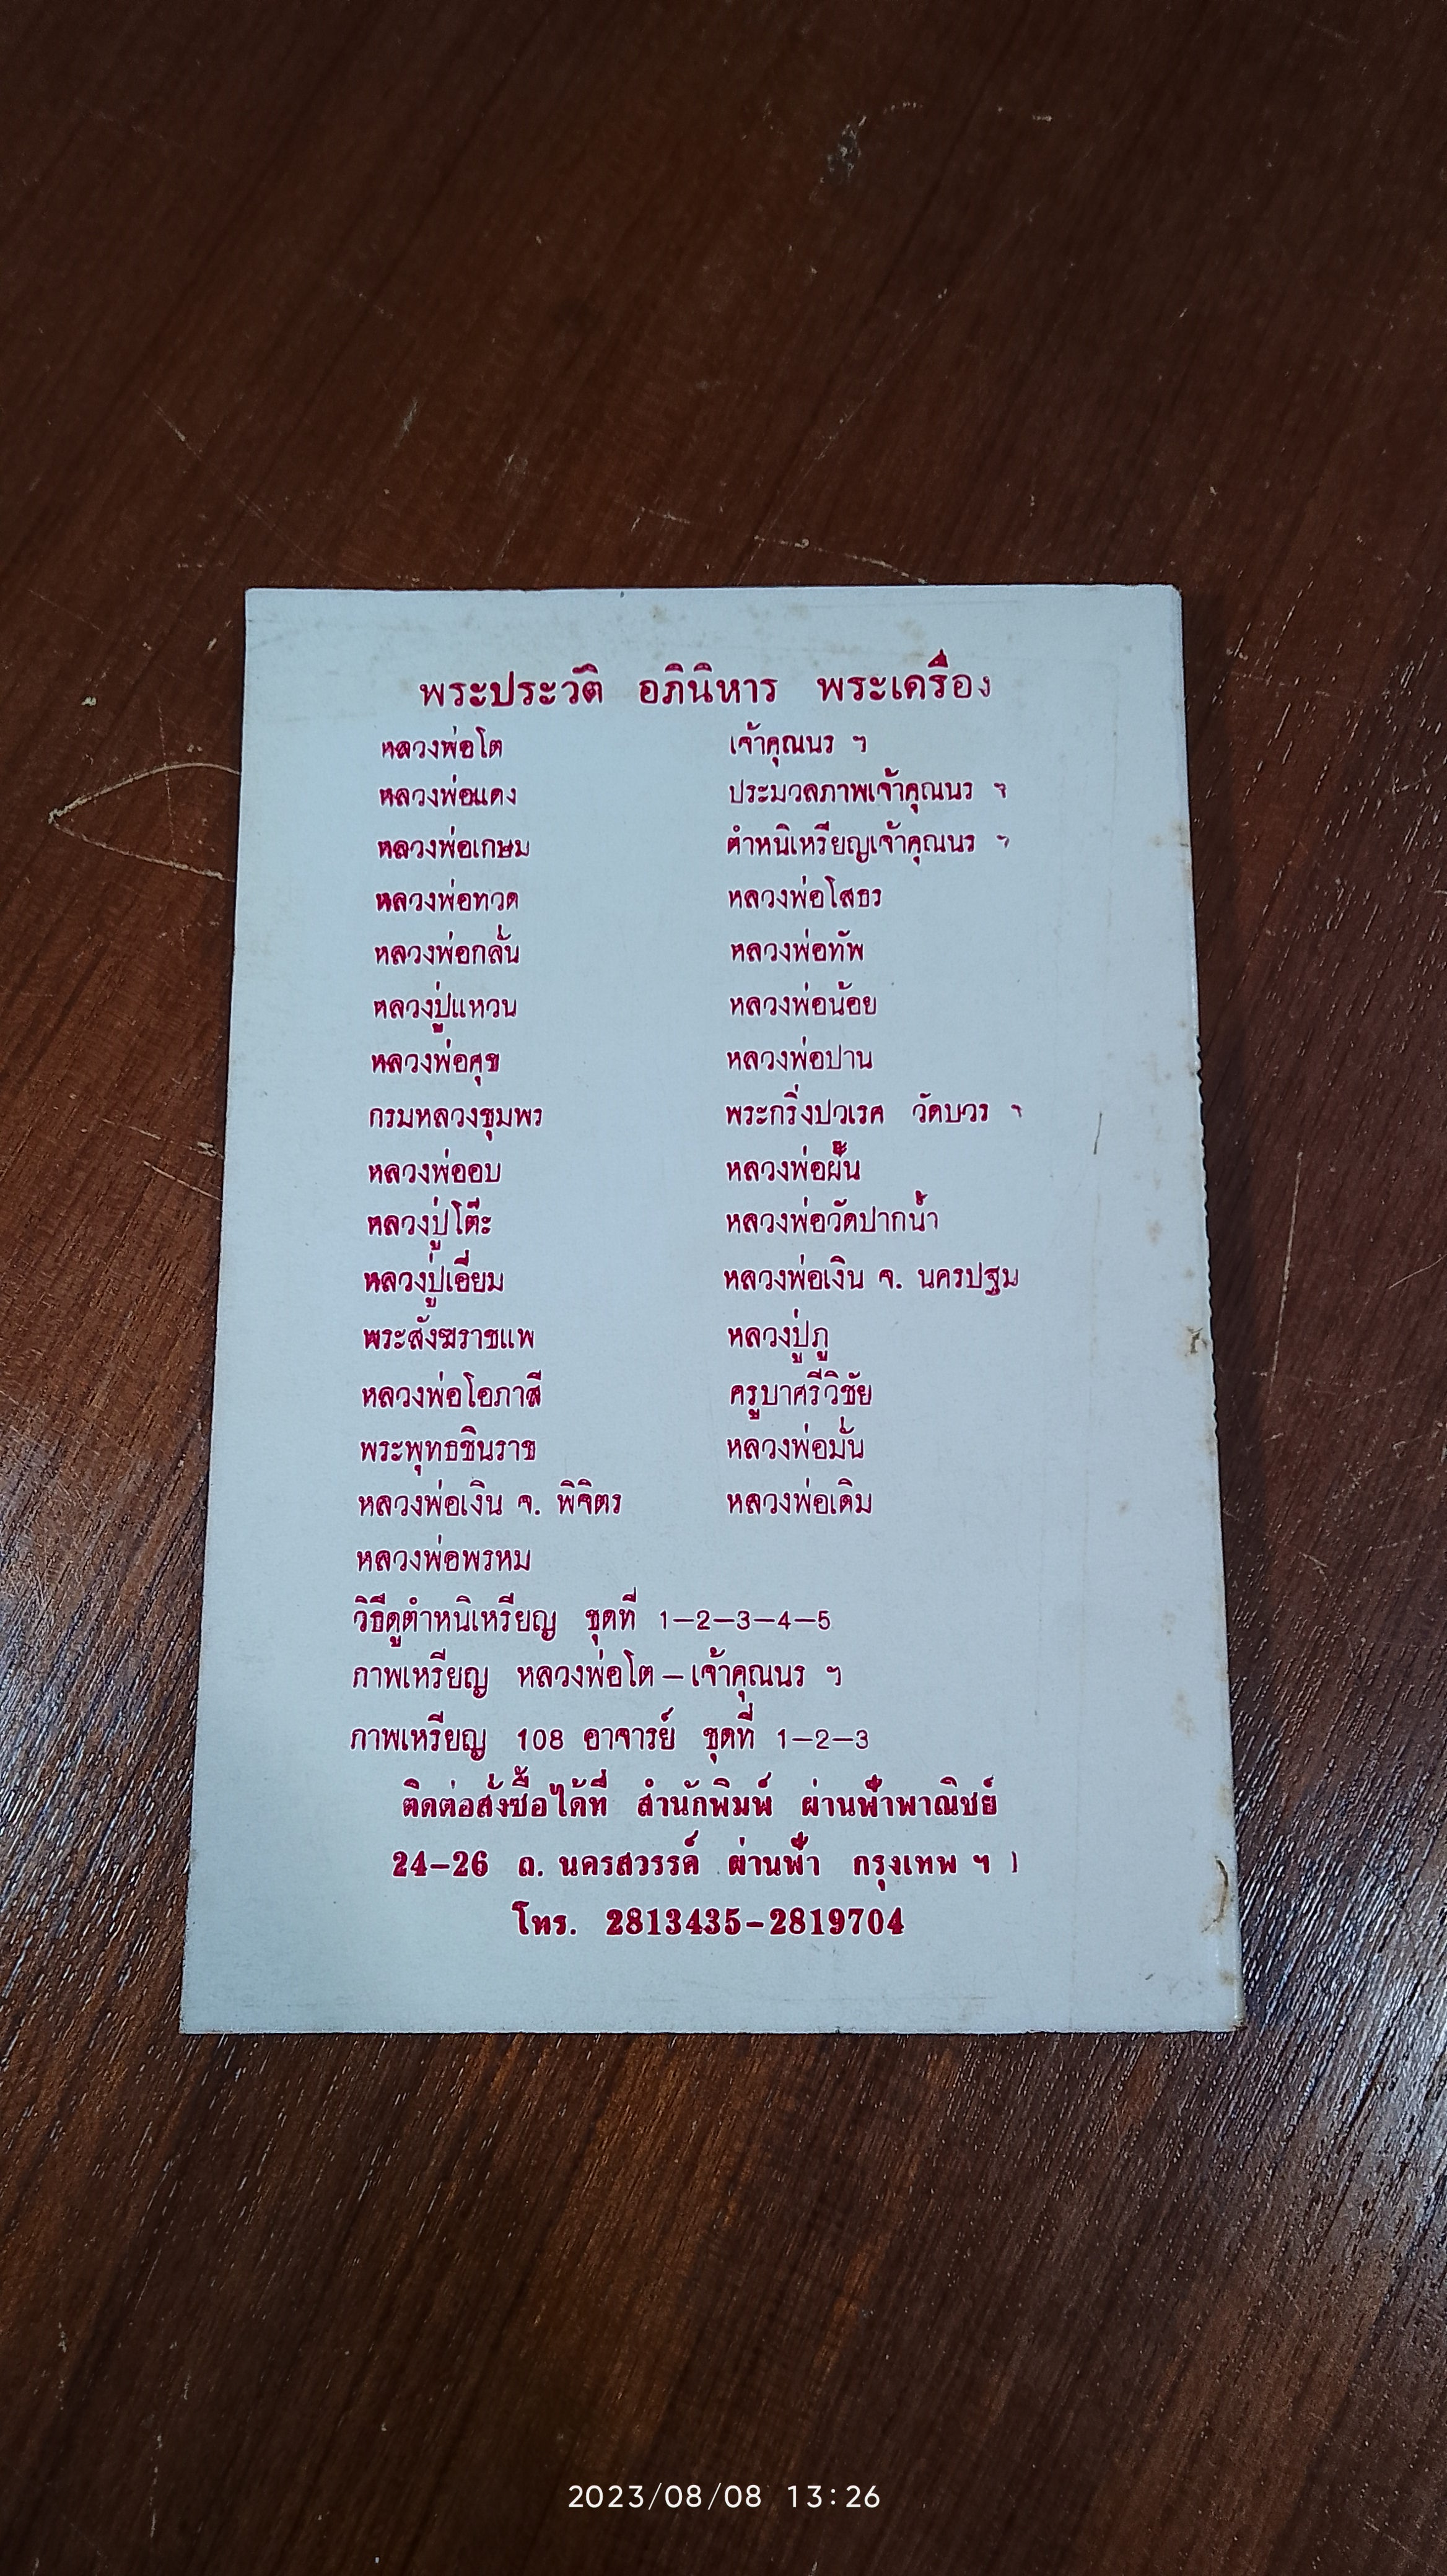 พระประวัติ อภินิหาร พระเครื่อง
หลวงพ่อโต เจ้าคุณนร ฯ
หลวงพ่อแดง ประมวลภาพเจ้าคุณนร ฯ
หลวงพ่อเกษม ตำหนิเหรียญเจ้าคุณนร ฯ
หลวงพ่อทวด หลวงพ่อโสธร
หลวงพ่อกลั่น หลวงพ่อทัพ
หลวงปู่แหวน หลวงพ่อน้อย
หลวงพ่อศุข หลวงพ่อปาน
กรมหลวงชุมพร พระกริ่งปวเรศ วัดบวร ฯ
หลวงพ่ออบ หลวงพ่อฝั้น
หลวงปู่โต๊ะ หลวงพ่อวัดปากน้ำ
หลวงปู่เอี่ยม หลวงพ่อเงิน จ. นครปฐม
พระสังฆราชแพ หลวงปู่ภู
หลวงพ่อโอภาสี ครูบาศรีวิชัย
พระพุทธชินราช หลวงพ่อมั่น
หลวงพ่อเงิน จ. พิจิตร หลวงพ่อเดิม
หลวงพ่อพรหม
วิธีดูตำหนิเหรียญ ชุดที่ 1–2–3–4–5
ภาพเหรียญ หลวงพ่อโต – เจ้าคุณนร ฯ
ภาพเหรียญ 108 อาจารย์ ชุดที่ 1–2–3
ติดต่อสั่งซื้อได้ที่ สำนักพิมพ์ ผ่านฟ้าพาณิชย์
24–26 ถ. นครสวรรค์ ผ่านฟ้า กรุงเทพ ฯ
โทร. 2813435–2819704
2023/08/08 13:26